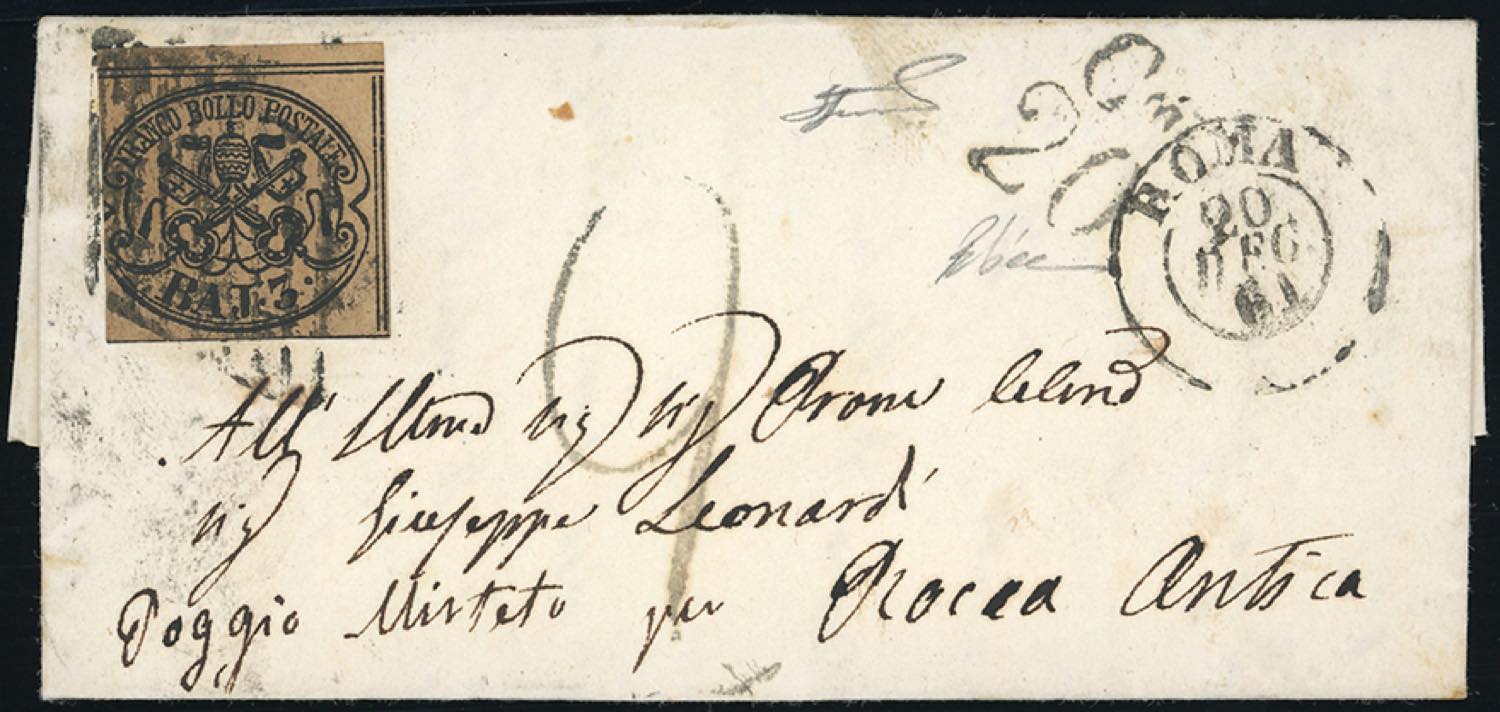 FRANCO BOLLO POSTALE
BAT. 3.
20 Cmi
ROMA
20
DEC
61
9
All' Illmo Sig Sig Prone
Sig Giuseppe Leonardi
Poggio Mirteto per Rocca Antica